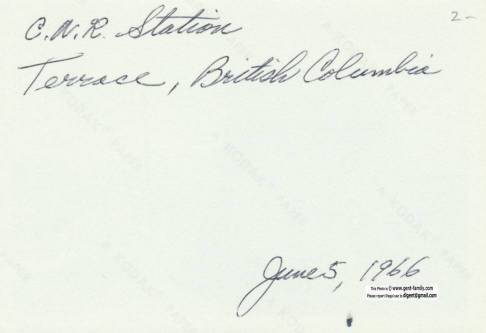 C.N.R. Station
2-
Terrace, British Columbia
June 5, 1966
This Photo is © www.gent-family.com
Please report illegal use to digent@gmail.com